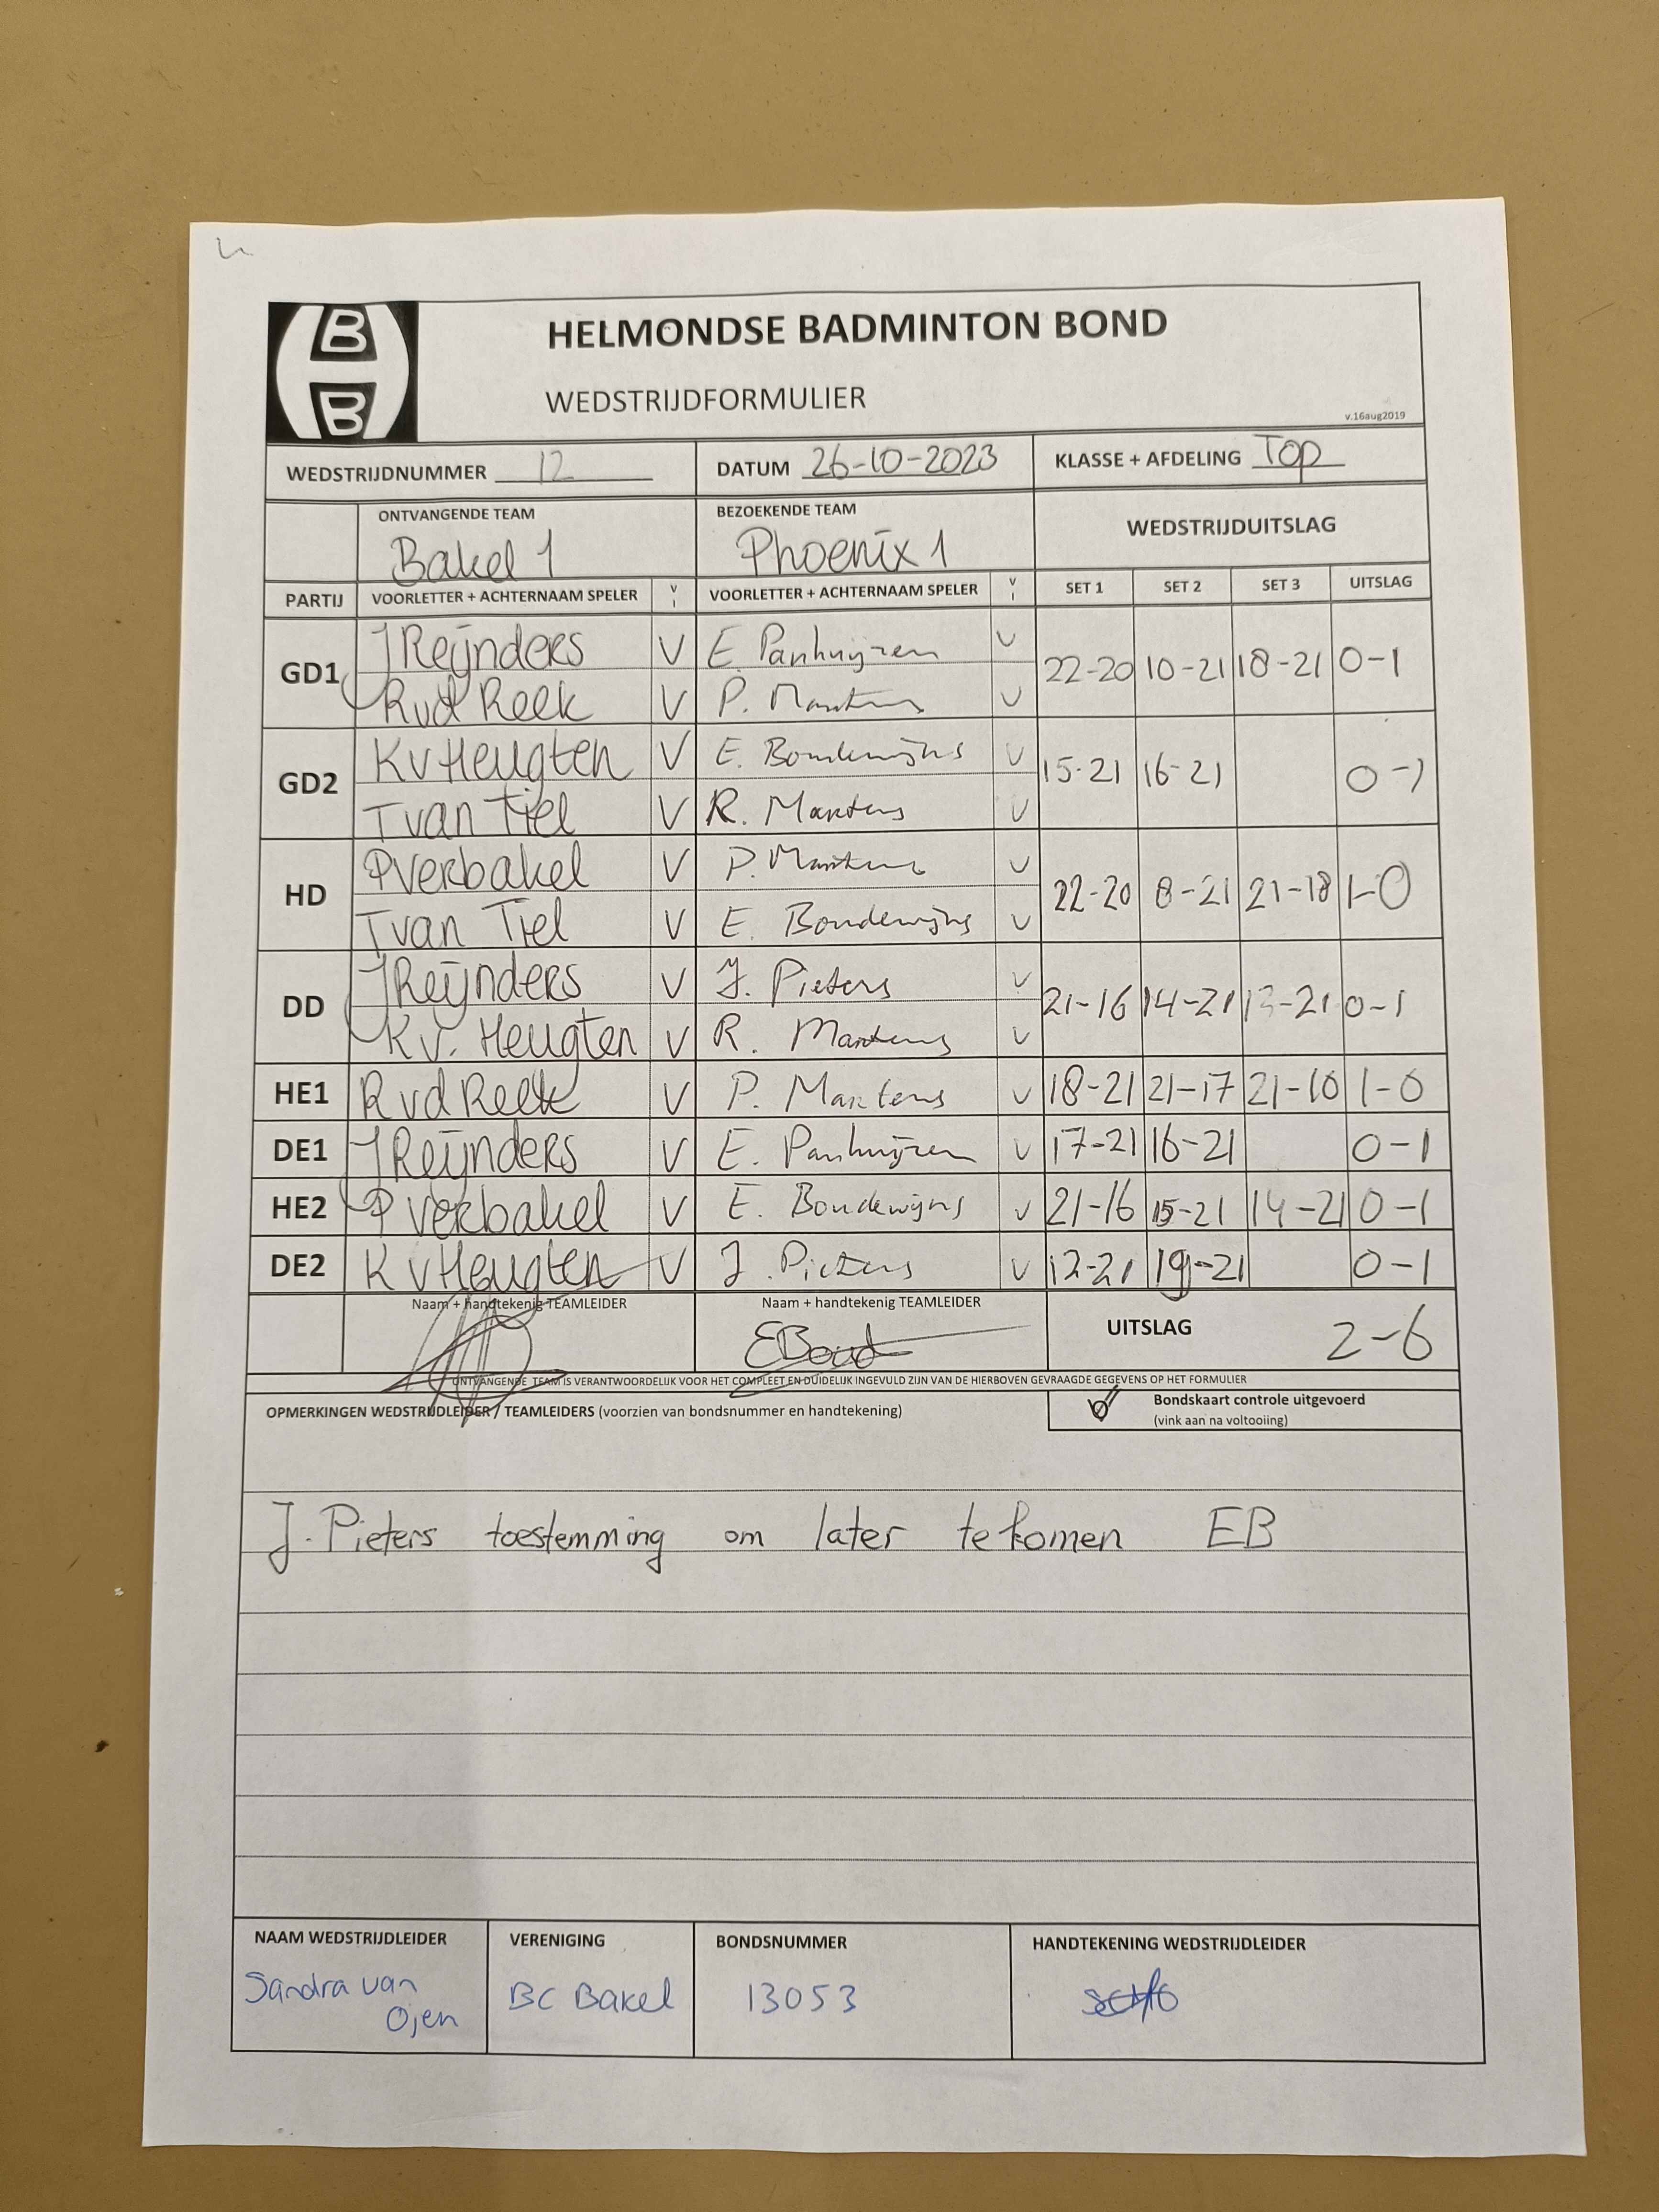 HELMONDSE BADMINTON BOND
WEDSTRIJDFORMULIER
v.16aug2019
WEDSTRIJDNUMMER 12 DATUM 26-10-2023 KLASSE + AFDELING Top
ONTVANGENDE TEAM BEZOEKENDE TEAM WEDSTRIJDUITSLAG
Bakel 1 Phoenix 1
PARTIJ VOORLETTER + ACHTERNAAM SPELER V I VOORLETTER + ACHTERNAAM SPELER V I SET 1 SET 2 SET 3 UITSLAG
GD1 J Reijnders V E. Panhuijzen V 22-20 10-21 18-21 0-1
R vd Reek V P. Martens V
GD2 K v Heugten V E. Boudewijns V 15-21 16-21 0-1
T van Tiel V R. Martens V
HD P Verbakel V P. Martens V 22-20 8-21 21-18 1-0
T van Tiel V E. Boudewijns V
DD J Reijnders V J. Pieters V 21-16 14-21 13-21 0-1
K v. Heugten V R. Martens V
HE1 R vd Reek V P. Martens V 18-21 21-17 21-10 1-0
DE1 J Reijnders V E. Panhuijzen V 17-21 16-21 0-1
HE2 P Verbakel V E. Boudewijns V 21-16 15-21 14-21 0-1
DE2 K v Heugten V J. Pieters V 12-21 19-21 0-1
Naam + handtekenig TEAMLEIDER Naam + handtekenig TEAMLEIDER UITSLAG 2-6
EBoud
ONTVANGENDE TEAM IS VERANTWOORDELIJK VOOR HET COMPLEET EN DUIDELIJK INGEVULD ZIJN VAN DE HIERBOVEN GEVRAAGDE GEGEVENS OP HET FORMULIER
OPMERKINGEN WEDSTRIJDLEIDER / TEAMLEIDERS (voorzien van bondsnummer en handtekening) Bondskaart controle uitgevoerd
(vink aan na voltooiing)
J. Pieters toestemming om later te komen EB
NAAM WEDSTRIJDLEIDER VERENIGING BONDSNUMMER HANDTEKENING WEDSTRIJDLEIDER
Sandra van BC Bakel 13053
Ojen